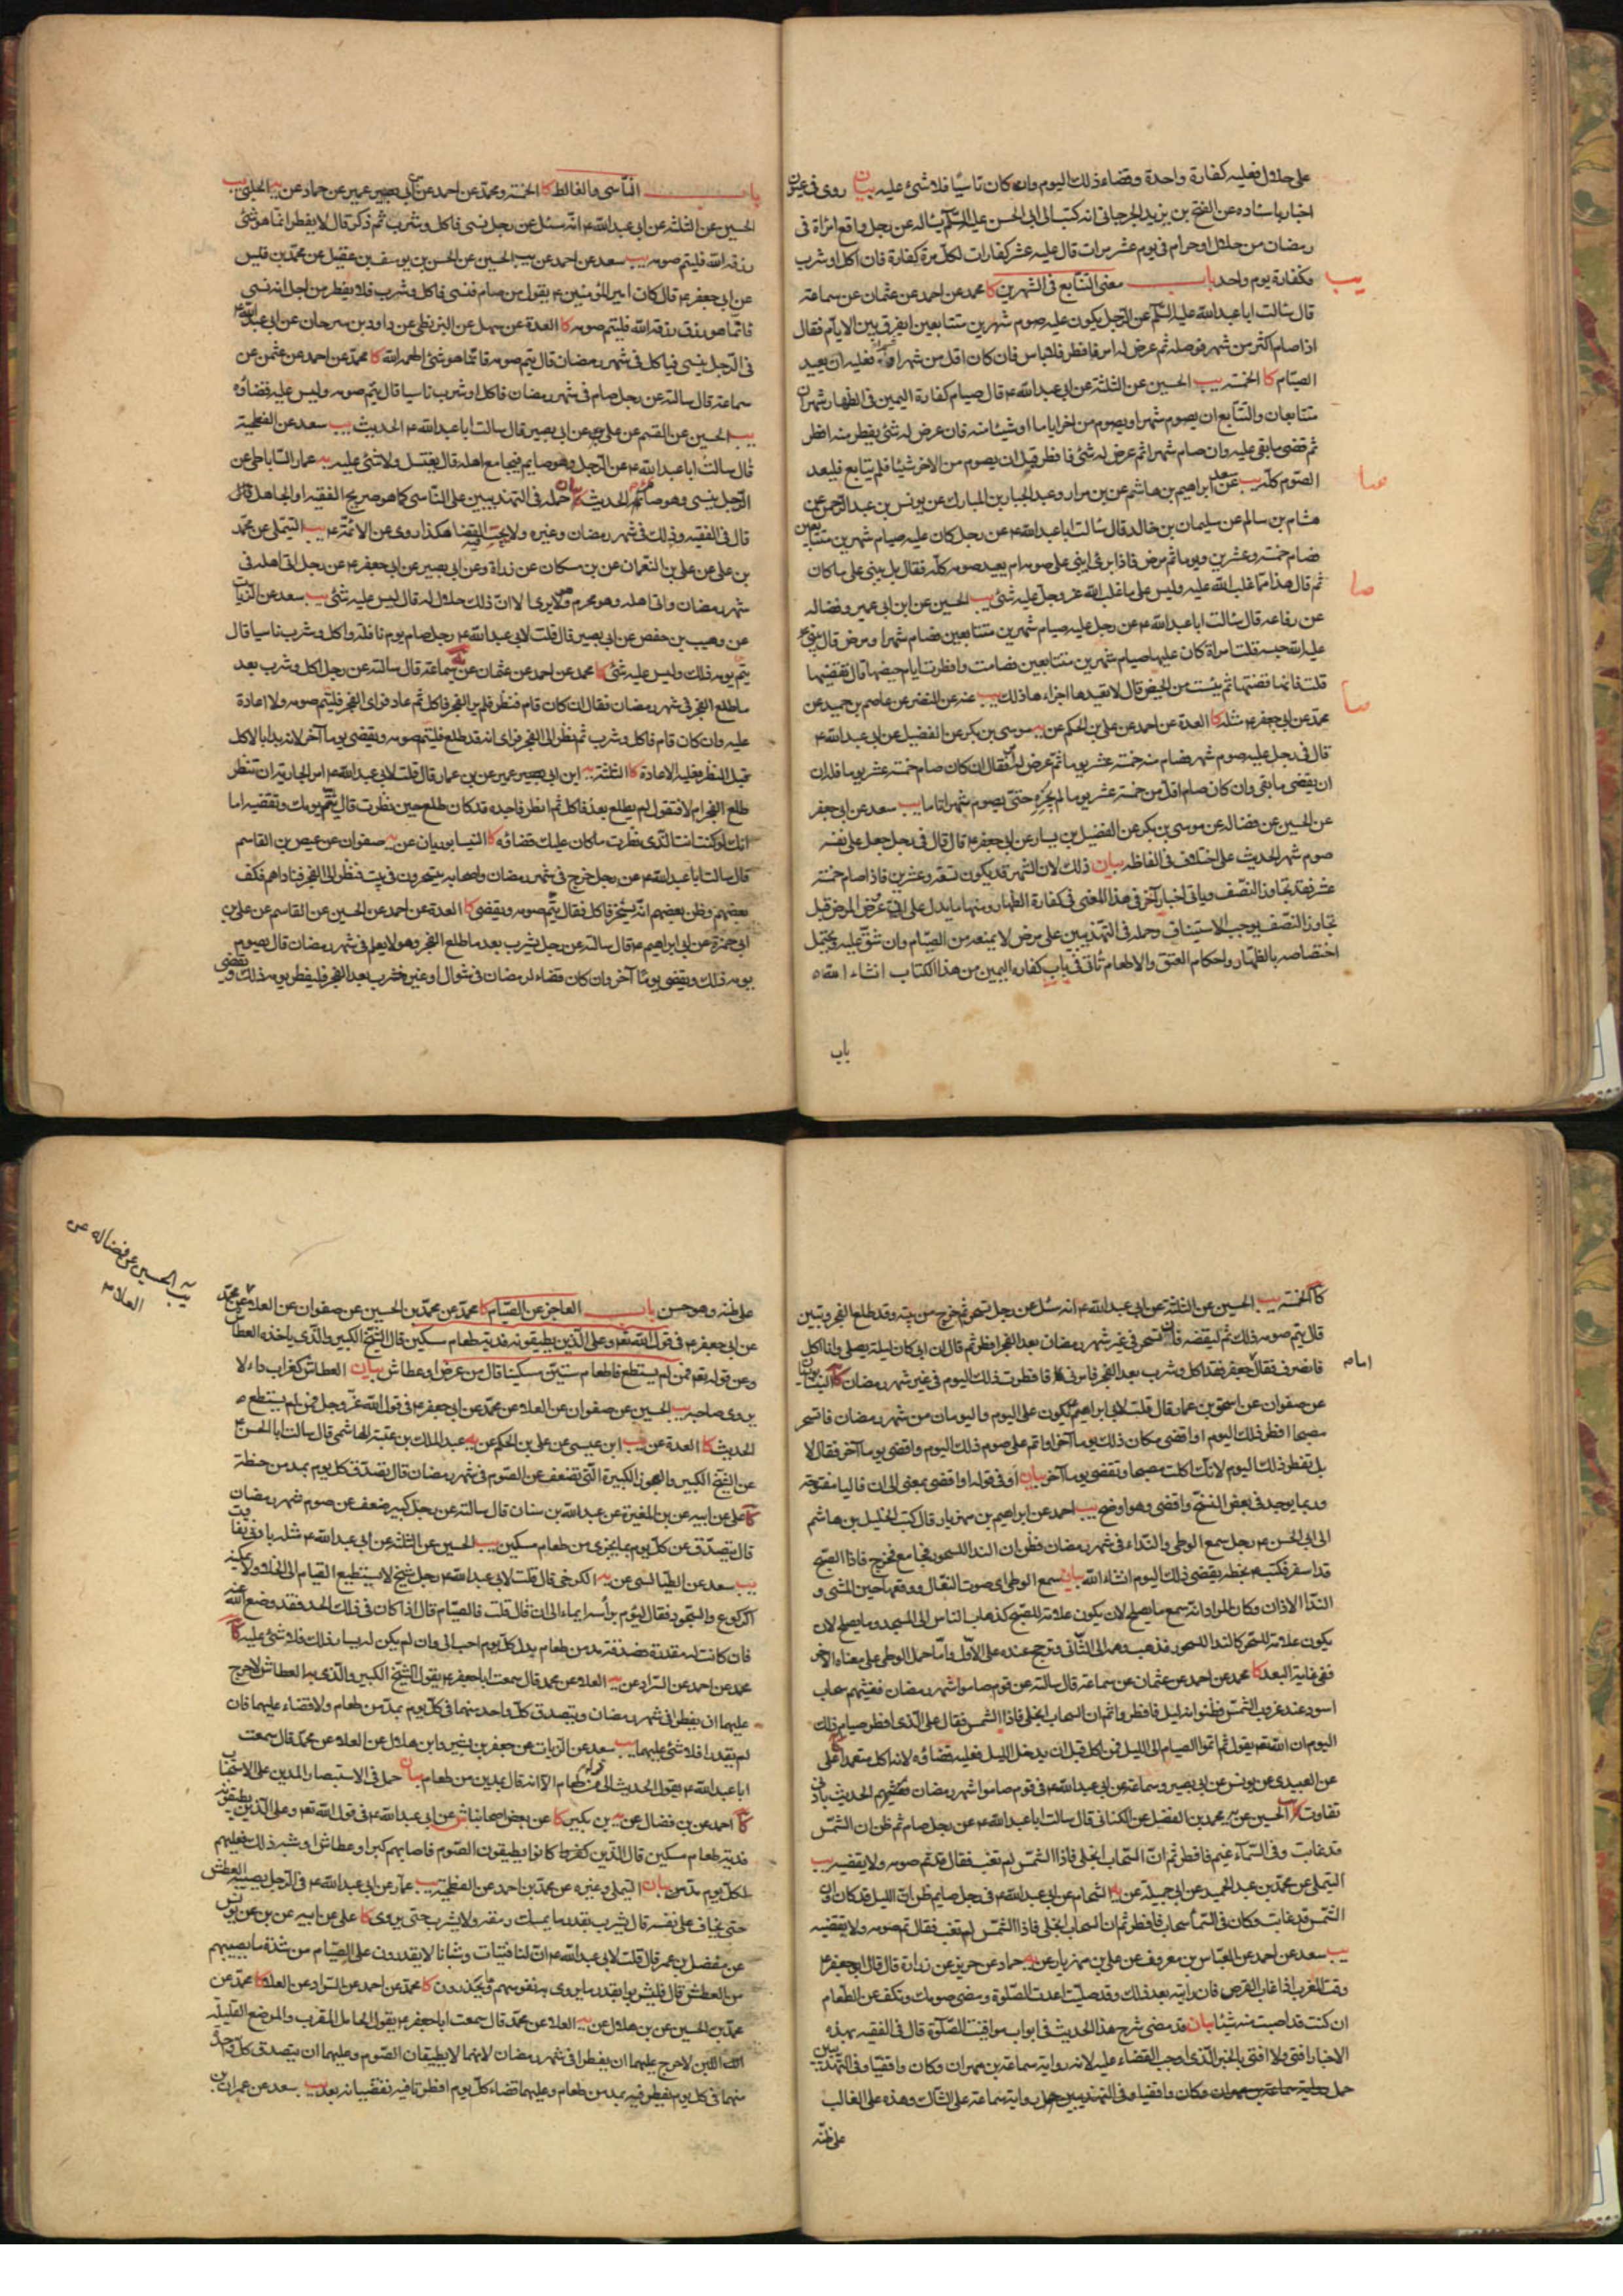 على حلال فعليه كفارة واحدة وقضاء ذلك اليوم وان كان ناسيا فلا شئ عليه بيان روى فى عيون
اخبار باسناده عن الفتح بن يزيد الجرجانى انه كتب الى ابى الحسن عليه السلام يسأله عن رجل واقع امراة فى
رمضان من حلال او حرام فى يوم عشر مرات قال عليه عشر كفارات لكل مرة كفارة فان اكل او شرب
فكفارة يوم واحد باب معنى التتابع فى الشهرين كا محمد عن احمد عن عثمان عن سماعة
قال سالت ابا عبد الله عليه السلم عن الرجل يكون عليه صوم شهرين متتابعين ايفرق بين الايام فقال
اذا صام اكثر من شهر فوصله ثم عرض له امر فافطر فلا باس فان كان اقل من شهر او فعليه ان يعيد
الصيام كا الخمسة يب الحسين عن الثلثة عن ابى عبد الله ع قال صيام كفارة اليمين فى الظهار شهران
متتابعان والتتابع ان يصوم شهرا ويصوم من اخر اياما او شيئا منه فان عرض له شئ يفطر منه افطر
ثم قضى ما بقى عليه وان صام شهرا ثم عرض له شئ فافطر قبل ان يصوم من الاخر شيئا فلم يتابع فليعد
الصوم كله يب سعد عن ابراهيم بن هاشم عن بن مرار وعبد الجبار بن المبارك عن يونس بن عبد الرحمن عن
هشام بن سالم عن سليمان بن خالد قال سالت ابا عبد الله ع عن رجل كان عليه صيام شهرين متتابعين
فصام خمسة وعشرين يوما ثم مرض فاذا برئ ايبنى على صومه ام يعيد صومه كله فقال بل يبنى على ما كان
ثم قال هذا مما غلب الله عليه وليس على ما غلب الله عز وجل عليه شئ يب الحسين عن ابن ابى عمير وفضاله
عن رفاعه قال سالت ابا عبد الله ع عن رجل عليه صيام شهرين متتابعين فصام شهرا ومرض قال يبنى
عليه الله حبسه قلت امراة كان عليها صيام شهرين متتابعين فصامت وافطرت ايام حيضها قال تقضيها
قلت فانها قضتها ثم يئست من الحيض قال لا تعيدها اجزاءها ذلك يب عنه عن النضر عن عاصم بن حميد عن
محمد عن ابى جعفر ع مثله كا العدة عن احمد عن على بن الحكم عن موسى بن بكر عن الفضيل عن ابى عبد الله ع
قال فى رجل عليه صوم شهر فصام منه خمسة عشر يوما ثم عرض له امر فقال ان كان صام خمسة عشر يوما فله ان
ان يقضى ما بقى وان كان صام اقل من خمسة عشر يوما لم يجزه حتى يصوم شهرا تاما يب سعد عن ابى جعفر
عن الحسين عن فضاله عن موسى بن بكر عن الفضيل بن يسار عن ابى جعفر ع قال قال فى رجل جعل على نفسه
صوم شهر الحديث على اختلاف فى الفاظه بيان ذلك لان الشهر قد يكون تسعة وعشرين فاذا صام خمسة
عشر فقد تجاوز النصف وياتى اخبار آخر فى هذا المعنى فى كفارة الظهار ومنها ما يدل على ان عرض المرض قبل
تجاوز النصف يوجب الاستيناف وحمله فى التهذيبين على مرض لا يمنعه من الصيام وان شق عليه ويحتمل
اختصاصه بالظهار واحكام العتق والاطعام تاتى فى باب كفارة اليمين من هذا الكتاب انشاء الله
باب
باب الناسى والغالط كا الخمسة ومحمد عن احمد عن ابن ابى عمير عن حماد عن الحلبى يب
الحسين عن الثلثة عن ابى عبد الله ع انه سئل عن رجل نسى فاكل وشرب ثم ذكر قال لا يفطر انما هو شئ
رزقه الله فليتم صومه يب سعد عن احمد عن الحسين عن الحسن بن يوسف بن عقيل عن محمد بن قيس
عن ابى جعفر ع قال كان امير المؤمنين ع يقول من صام فنسى فاكل وشرب فلا يفطر من اجل انه نسى
فانما هو رزق رزقه الله فليتم صومه كا العدة عن سهل عن البزنطى عن داود بن سرحان عن ابى عبد الله ع
فى الرجل ينسى فياكل فى شهر رمضان قال يتم صومه فانما هو شئ اطعمه الله كا محمد عن احمد عن عثمن عن
سماعة قال سالته عن رجل صام فى شهر رمضان فاكل وشرب ناسيا قال يتم صومه وليس عليه قضاؤه
يب الحسين عن القسم عن على عن ابى بصير قال سالت ابا عبد الله ع الحديث يب سعد عن الفطحية
قال سالت ابا عبد الله ع عن الرجل وهو صايم فيجامع اهله قال يغتسل ولا شئ عليه يه عمار الساباطى عن
الرجل ينسى وهو صائم الحديث بيان حمله فى التهذيبين على الناسى كما هو صريح الفقيه او الجاهل قال
قال فى الفقيه وذلك فى شهر رمضان وغيره ولا يجب القضا هكذا روى عن الائمة ع يب التيملى عن محمد
بن على عن على بن النعمان عن بن مسكان عن زرارة وعن ابى بصير عن ابى جعفر ع عن رجل اتى اهله فى
شهر رمضان واتى اهله وهو محرم وهو لا يرى الا ان ذلك حلال له قال ليس عليه شئ يب سعد عن الزيات
عن وهيب بن حفص عن ابى بصير قال قلت لابى عبد الله ع رجل صام يوم نافلة واكل وشرب ناسيا قال
يتم يومه ذلك وليس عليه شئ كا محمد عن احمد عن عثمان عن سماعة قال سالته عن رجل اكل وشرب بعد
ما طلع الفجر فى شهر رمضان فقال ان كان قام فنظر فلم ير الفجر فاكل ثم عاد فراى الفجر فليتم صومه ولا اعادة
عليه وان كان قام فاكل وشرب ثم نظر الى الفجر فراى انه قد طلع فليتم صومه ويقضى يوما آخر لانه بدا بالاكل
قبل النظر فعليه الاعادة كا الثلثة يه ابن ابى عمير عن بن عمار قال قلت لابى عبد الله ع امر الجارية ان تنظر
طلع الفجر ام لا فتقول لم يطلع بعد فاكل ثم انظر فاجده قد كان طلع حين نظرت قال تتم يومك وتقضيه اما
انك لو كنت انت الذى نظرت ما كان عليك قضائه كا النيسابوريان عن صفوان عن عيص بن القاسم
قال سالت ابا عبد الله ع عن رجل خرج فى شهر رمضان واصحابه يتسحرون فى بيت فنظر الى الفجر فناداهم فكف
بعضهم وظن بعضهم انه يسخر فاكل فقال يتم صومه ويقضى كا العدة عن احمد عن الحسين عن القاسم عن على بن
ابى حمزة عن ابى ابراهيم ع قال سالته عن رجل شرب بعد ما طلع الفجر وهو لا يعلم فى شهر رمضان قال يصوم
يومه ذلك ويقضى يوما آخر وان كان قضاء لرمضان فى شوال او غيره فشرب بعد الفجر فليفطر يومه ذلك ويقضى
كا الخمسة يب الحسين عن الثلثة عن ابى عبد الله ع انه سئل عن رجل تسحر ثم خرج من بيته وقد طلع الفجر وتبين
قال يتم صومه ذلك ثم ليقضه فان تسحر فى غير شهر رمضان بعد الفجر افطر ثم قال ان ابى كان ليلة يصلى وانا اكل
فانصرف فقال جعفر فقد اكل وشرب بعد الفجر فامرنى فافطرت ذلك اليوم فى غير شهر رمضان كا النيسابوريان
امام
عن صفوان عن اسحق بن عمار قال قلت لابى ابراهيم ع يكون على اليوم واليومان من شهر رمضان فاتسحر
مصبحا افطر ذلك اليوم او اقضى مكان ذلك يوما آخر او اتم على صوم ذلك اليوم واقضى يوما آخر فقال لا
بل تفطر ذلك اليوم لانك اكلت مصبحا وتقضى يوما آخر بيان او فى قوله او اقضى بمعنى الى ان فاليا مفتوحة
وربما يوجد فى بعض النسخ واقضى وهو اوضح يب احمد عن ابراهيم بن مهزيار قال كتب الخليل بن هاشم
الى ابى الحسن ع رجل سمع الوطى والنداء فى شهر رمضان فظن ان الندا للسحور فجامع فخرج فاذا الصبح
قد اسفر فكتب ع بخطه يقضى ذلك اليوم انشاء الله بيان سمع الوطى اى صوت النعال ووقعها حين المشى و
النداء الاذان وكان المراد انه سمع ما يصلح لان يكون علامة للصبح كذهاب الناس الى المسجد وما يصلح لان
يكون علامة للسحر كالنداء للسحور فذهب وهمه الى الثانى وترجح عنده على الاول واما حمل الوطى على معناه الاخر
ففى غاية البعد كا محمد عن احمد عن عثمان عن سماعة قال سالته عن قوم صاموا شهر رمضان فغشيهم سحاب
اسود عند غروب الشمس فظنوا انه ليل فافطروا ثم ان السحاب انجلى فاذا الشمس فقال على الذى افطر صيام ذلك
اليوم ان الله تعه يقول ثم اتموا الصيام الى الليل فمن اكل قبل ان يدخل الليل فعليه قضاؤه لانه اكل متعمدا على
عن العبيدى عن يونس عن ابى بصير وسماعة عن ابى عبد الله ع فى قوم صاموا شهر رمضان فغشيهم الحديث بادنى
تفاوت الحسين عن محمد بن الفضيل عن الكنانى قال سالت ابا عبد الله ع عن رجل صام ثم ظن ان الشمس
قد غابت وفى السماء غيم فافطر ثم ان السحاب انجلى فاذا الشمس لم تغب فقال قد تم صومه ولا يقضيه يب
التيملى عن محمد بن عبد الحميد عن ابى جميلة عن الشحام عن ابى عبد الله ع فى رجل صايم ظن ان الليل قد كان وان
الشمس قد غابت وكان فى السماء سحاب فافطر ثم ان السحاب انجلى فاذا الشمس لم تغب فقال تم صومه ولا يقضيه
يب سعد عن احمد عن العباس بن معروف عن على بن مهزيار عن حماد عن حريز عن زرارة قال قال ابو جعفر ع
وقت المغرب اذا غاب القرص فان رايته بعد ذلك وقد صليت اعدت الصلوة ومضى صومك وتكف عن الطعام
ان كنت قد اصبت منه شيئا بيان قد مضى شرح هذا الحديث فى ابواب مواقيت الصلوة قال فى الفقيه بهذه
الاخبار افتى ولا افتى بالخبر الذى اوجب القضاء عليه لانه رواية سماعة بن مهران وكان واقفيا وفى التهذيبين
حمل رواية سماعة بن مهران وكان واقفيا وفى التهذيبين حمل رواية سماعة على الشاك وهذه على الغالب
على ظنه
يب الحسين عن فضاله عن
العلا م
على ظنه وهو حسن باب العاجز عن الصيام كا محمد عن محمد بن الحسين عن صفوان عن العلا عن محمد
عن ابى جعفر ع فى قول الله تعه وعلى الذين يطيقونه فدية طعام مسكين قال الشيخ الكبير والذى ياخذه العطاش
وعن قوله تعه فمن لم يستطع فاطعام ستين مسكينا قال من مرض او عطاش بيان العطاش كغراب داء لا
يروى صاحبه يب الحسين عن صفوان عن العلا عن محمد عن ابى جعفر ع فى قول الله عز وجل فمن لم يستطع
الحديث كا العدة عن ابن عيسى عن على بن الحكم عن عبد الملك بن عتبة الهاشمى قال سالت ابا الحسن ع
عن الشيخ الكبير والعجوز الكبيرة التى تضعف عن الصوم فى شهر رمضان قال تصدق كل يوم بمد من حنطة
كا على عن ابيه عن بن المغيرة عن عبد الله بن سنان قال سالته عن رجل كبير ضعف عن صوم شهر رمضان
قال يتصدق عن كل يوم بما يجزى من طعام مسكين يب الحسين عن الثلثة عن ابى عبد الله ع مثله بادنى تفاوت
يب سعد عن الطيالسى عن الكرخى قال قلت لابى عبد الله ع رجل شيخ لا يستطيع القيام الى الخلاء ولا يمكنه
الركوع والسجود فقال ليوم براسه ايماء الى ان قال قلت فالصيام قال اذا كان فى ذلك الحد فقد وضع الله عنه
فان كانت له مقدرة فصدقة مد من طعام بدل كل يوم احب الى وان لم يكن له يسار ذلك فلا شئ عليه كا
محمد عن احمد عن السراد عن العلا عن محمد قال سمعت ابا جعفر ع يقول الشيخ الكبير والذى به العطاش لا حرج
عليهما ان يفطرا فى شهر رمضان ويتصدق كل واحد منهما فى كل يوم بمد من طعام ولا قضاء عليهما فان
لم يقدرا فلا شئ عليهما يب سعد عن الزيات عن جعفر بن بشير وابن هلال عن العلا عن محمد قال سمعت
ابا عبد الله ع يقول الحديث الى قوله طعام الا انه قال بمدين من طعام بيان حمل فى الاستبصار المدين على الاستحباب
كا احمد عن بن فضال عن بن بكير عن بعض اصحابنا عن ابى عبد الله ع فى قول الله تعه وعلى الذين يطيقونه
فدية طعام مسكين قال الذين كانوا يطيقون الصوم فاصابهم كبر او عطاش او شبه ذلك فعليهم
لكل يوم مد بيان التيملى وغيره عن محمد بن احمد عن الفطحية يب عمار عن ابى عبد الله ع فى الرجل يصيبه العطش
حتى يخاف على نفسه قال يشرب بقدر ما يمسك رمقه ولا يشرب حتى يروى كا على عن ابيه عن بن عن يونس
عن مفضل بن عمر قال قلت لابى عبد الله ع ان لنا فتيات وشبانا لا يقدرون على الصيام من شدة ما يصيبهم
من العطش قال فليشربوا بقدر ما يروى به نفوسهم وما يحذرون كا محمد عن احمد عن السراد عن العلا كا محمد عن
محمد بن الحسين عن بن هلال عن العلا عن محمد قال سمعت ابا جعفر ع يقول الحامل المقرب والمرضع القليلة
اللبن لا حرج عليهما ان يفطرا فى شهر رمضان لانهما لا يطيقان الصوم وعليهما ان يتصدق كل واحد
منهما فى كل يوم يفطر فيه بمد من طعام وعليهما قضاء كل يوم افطرتا فيه تقضيانه بعد يب سعد عن عمران بن